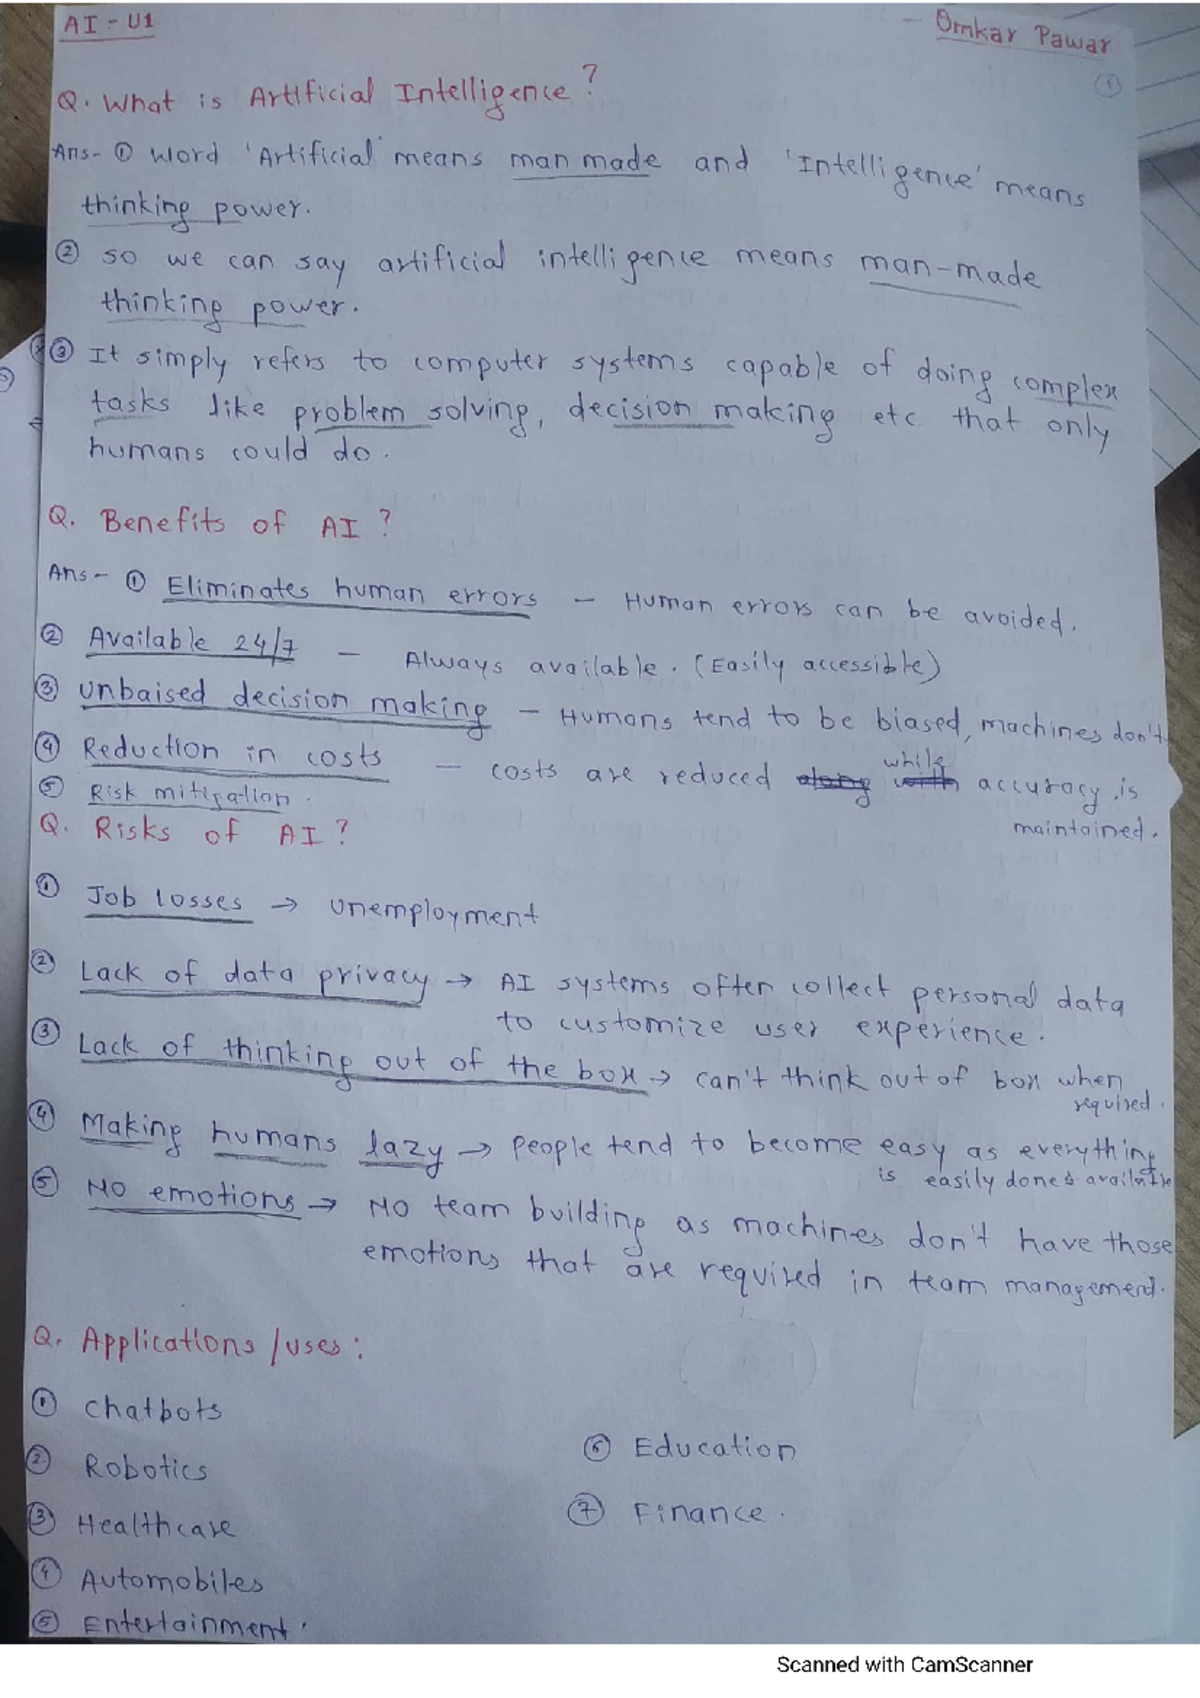 AI - U1
- Omkar Pawar
1
Q. What is Artificial Intelligence?
Ans- ① Word 'Artificial' means man made and 'Intelligence' means
thinking power.
② so we can say artificial intelligence means man-made
thinking power.
③ It simply refers to computer systems capable of doing complex
tasks like problem solving, decision making etc that only
humans could do.
Q. Benefits of AI?
Ans- ① Eliminates human errors - Human errors can be avoided.
② Available 24/7 - Always available. (Easily accessible)
③ unbaised decision making - Humans tend to be biased, machines don't
④ Reduction in costs - costs are reduced along with while accuracy is
maintained.
⑤ Risk mitigation.
Q. Risks of AI?
① Job losses → unemployment
② Lack of data privacy → AI systems often collect personal data
to customize user experience.
③ Lack of thinking out of the box → can't think out of box when
required.
④ Making humans lazy → people tend to become easy as everything
is easily done & available
⑤ No emotions → No team building as machines don't have those
emotions that are required in team management.
Q. Applications/uses:
① chatbots
② Robotics
③ Healthcare
④ Automobiles
⑤ Entertainment.
⑥ Education
⑦ Finance.
Scanned with CamScanner